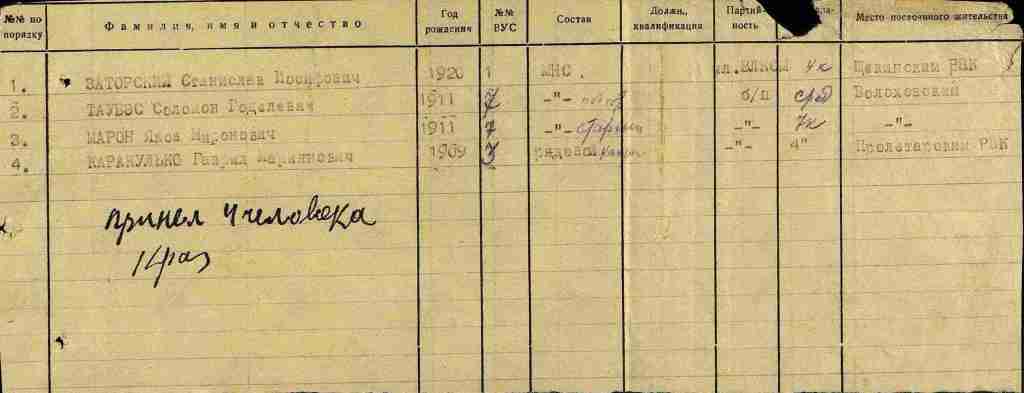 №№ по порядку Фамилия, имя и отчество Год рождения №№ ВУС Состав Должн., квалификация Партий- ность Место постоянного жительства
1. ЗАТОРСКИЙ Станислав Иосифович 1920 1 МНС. чл. ВЛКСМ 4к Щекинским РВК
2. ТАУБЭС Соломон Годелевич 1911 7 -"- б/п сред Болоховский
3. МАРОН Яков Миронович 1911 7 -"- старший -"- 7к -"-
4. КАРАКУЛЬКО Гаврил Маркиянович 1909 3 рядовой -"- 4" Пролетарским РВК
принел 4 человека